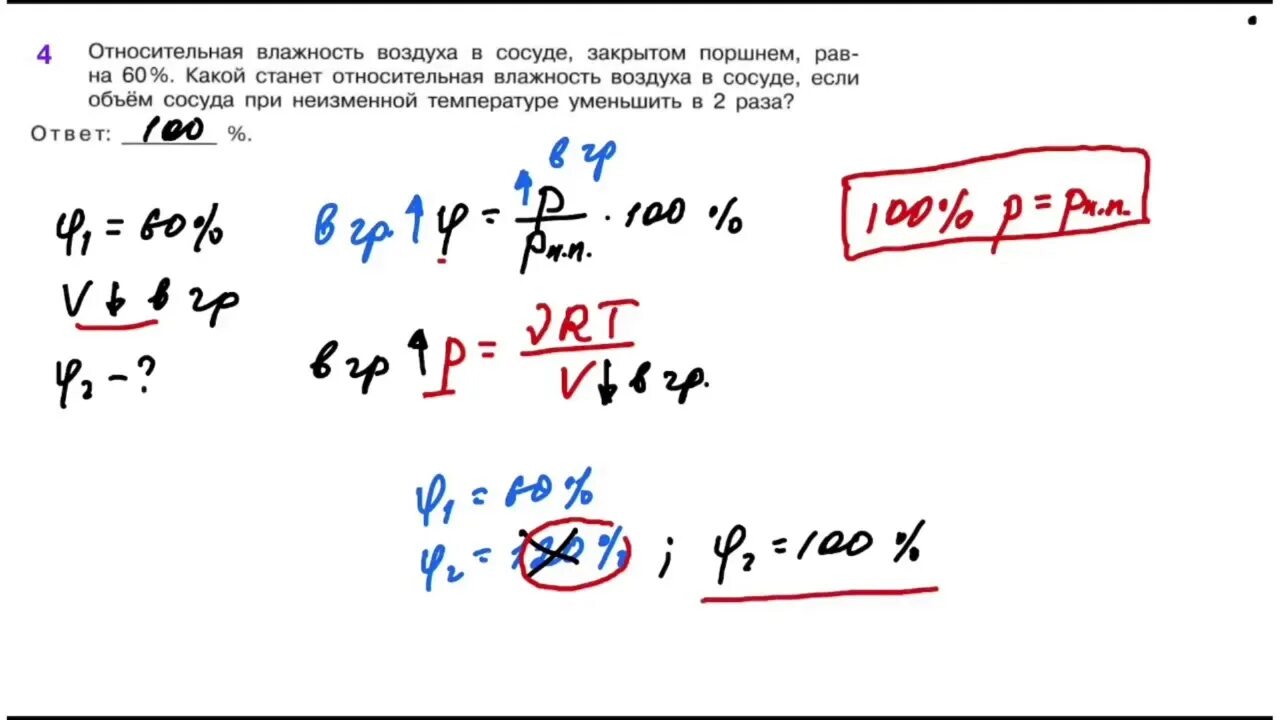 4 Относительная влажность воздуха в сосуде, закрытом поршнем, рав-
на 60%. Какой станет относительная влажность воздуха в сосуде, если
объём сосуда при неизменной температуре уменьшить в 2 раза?
Ответ: 100 %.
φ₁ = 60%
V ↓ в 2р
φ₂ - ?
в 2р
в 2р. ↑ φ = ↑p / pн.п. · 100 %
100% p = pн.п.
в 2р ↑ p = νRT / V ↓ в 2р.
φ₁ = 60%
φ₂ = 120% ; φ₂ = 100 %